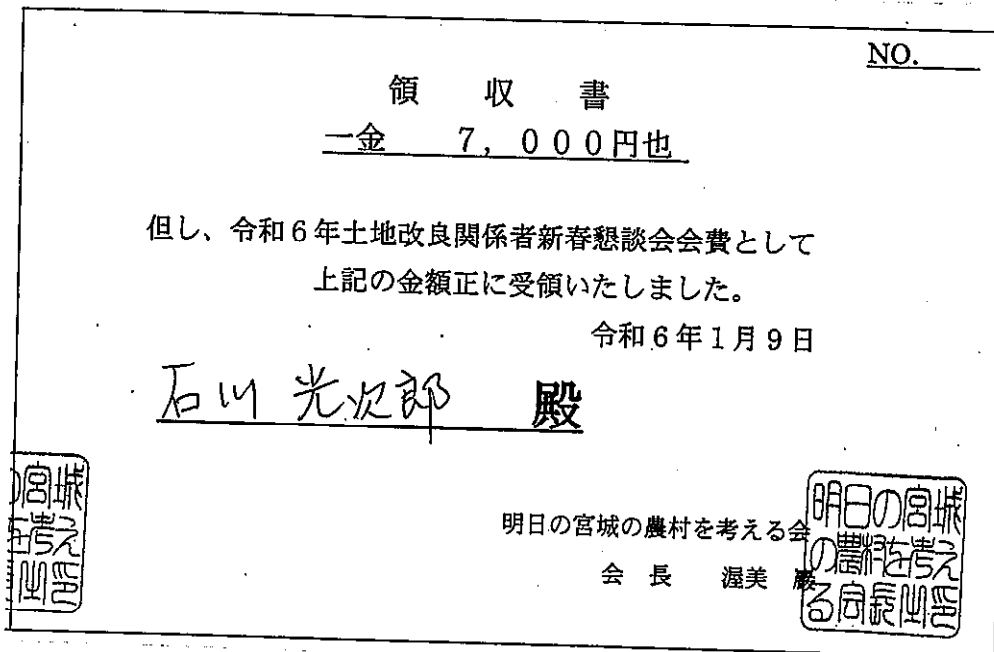 NO.
領 収 書
一金 7,000円也
但し、令和6年土地改良関係者新春懇談会会費として
上記の金額正に受領いたしました。
令和6年1月9日
石川 光次郎 殿
明日の宮城の農村を考える会
会 長 渥美 巖
明日の宮城
の農村を考え
る会長之印
の宮城
を考え
之印